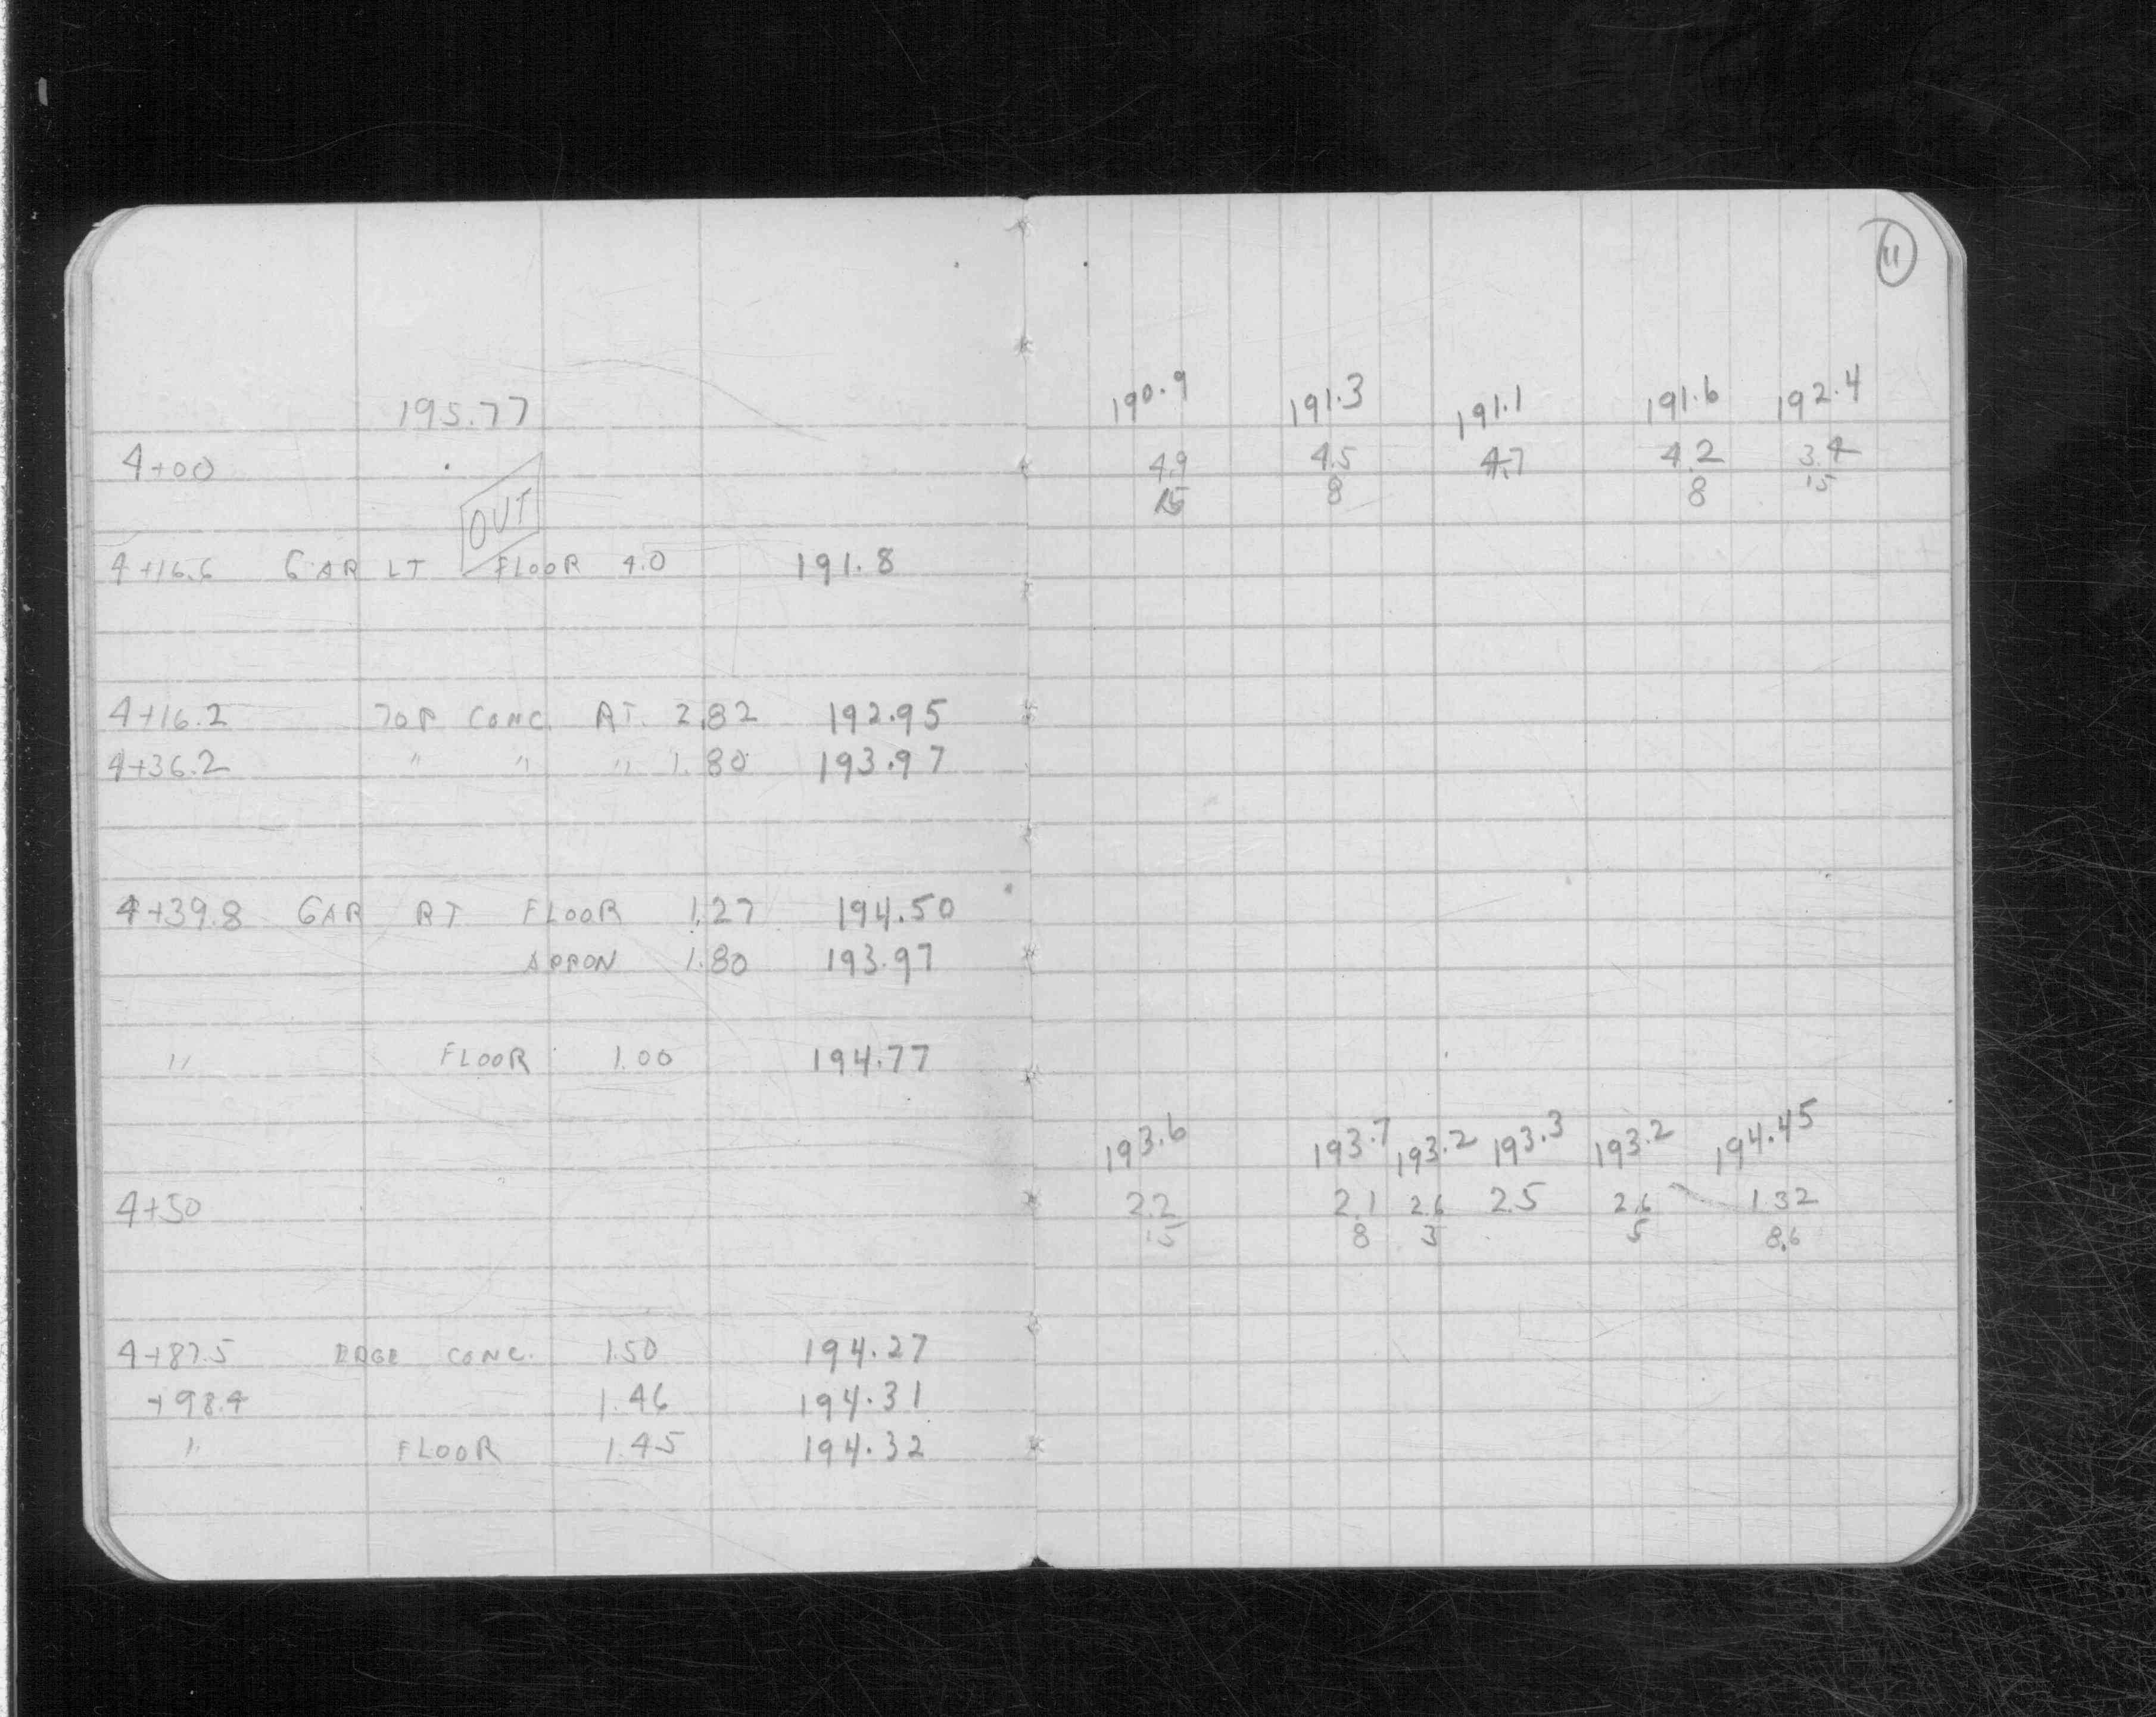 11
195.77
190.9 191.3 191.1 191.6 192.4
4+00 4.9 4.5 4.7 4.2 3.4
15 8 8 15
OUT
4+16.6 GAR LT FLOOR 4.0 191.8
4+16.2 TOP CONC. RT. 2.82 192.95
4+36.2 " " " 1.80 193.97
4+39.8 GAR RT FLOOR 1.27 194.50
APRON 1.80 193.97
" FLOOR 1.00 194.77
193.6 193.7 193.2 193.3 193.2 194.45
4+50 2.2 2.1 2.6 2.5 2.6 1.32
15 8 3 5 8.6
4+87.5 EDGE CONC. 1.50 194.27
+98.4 1.46 194.31
" FLOOR 1.45 194.32